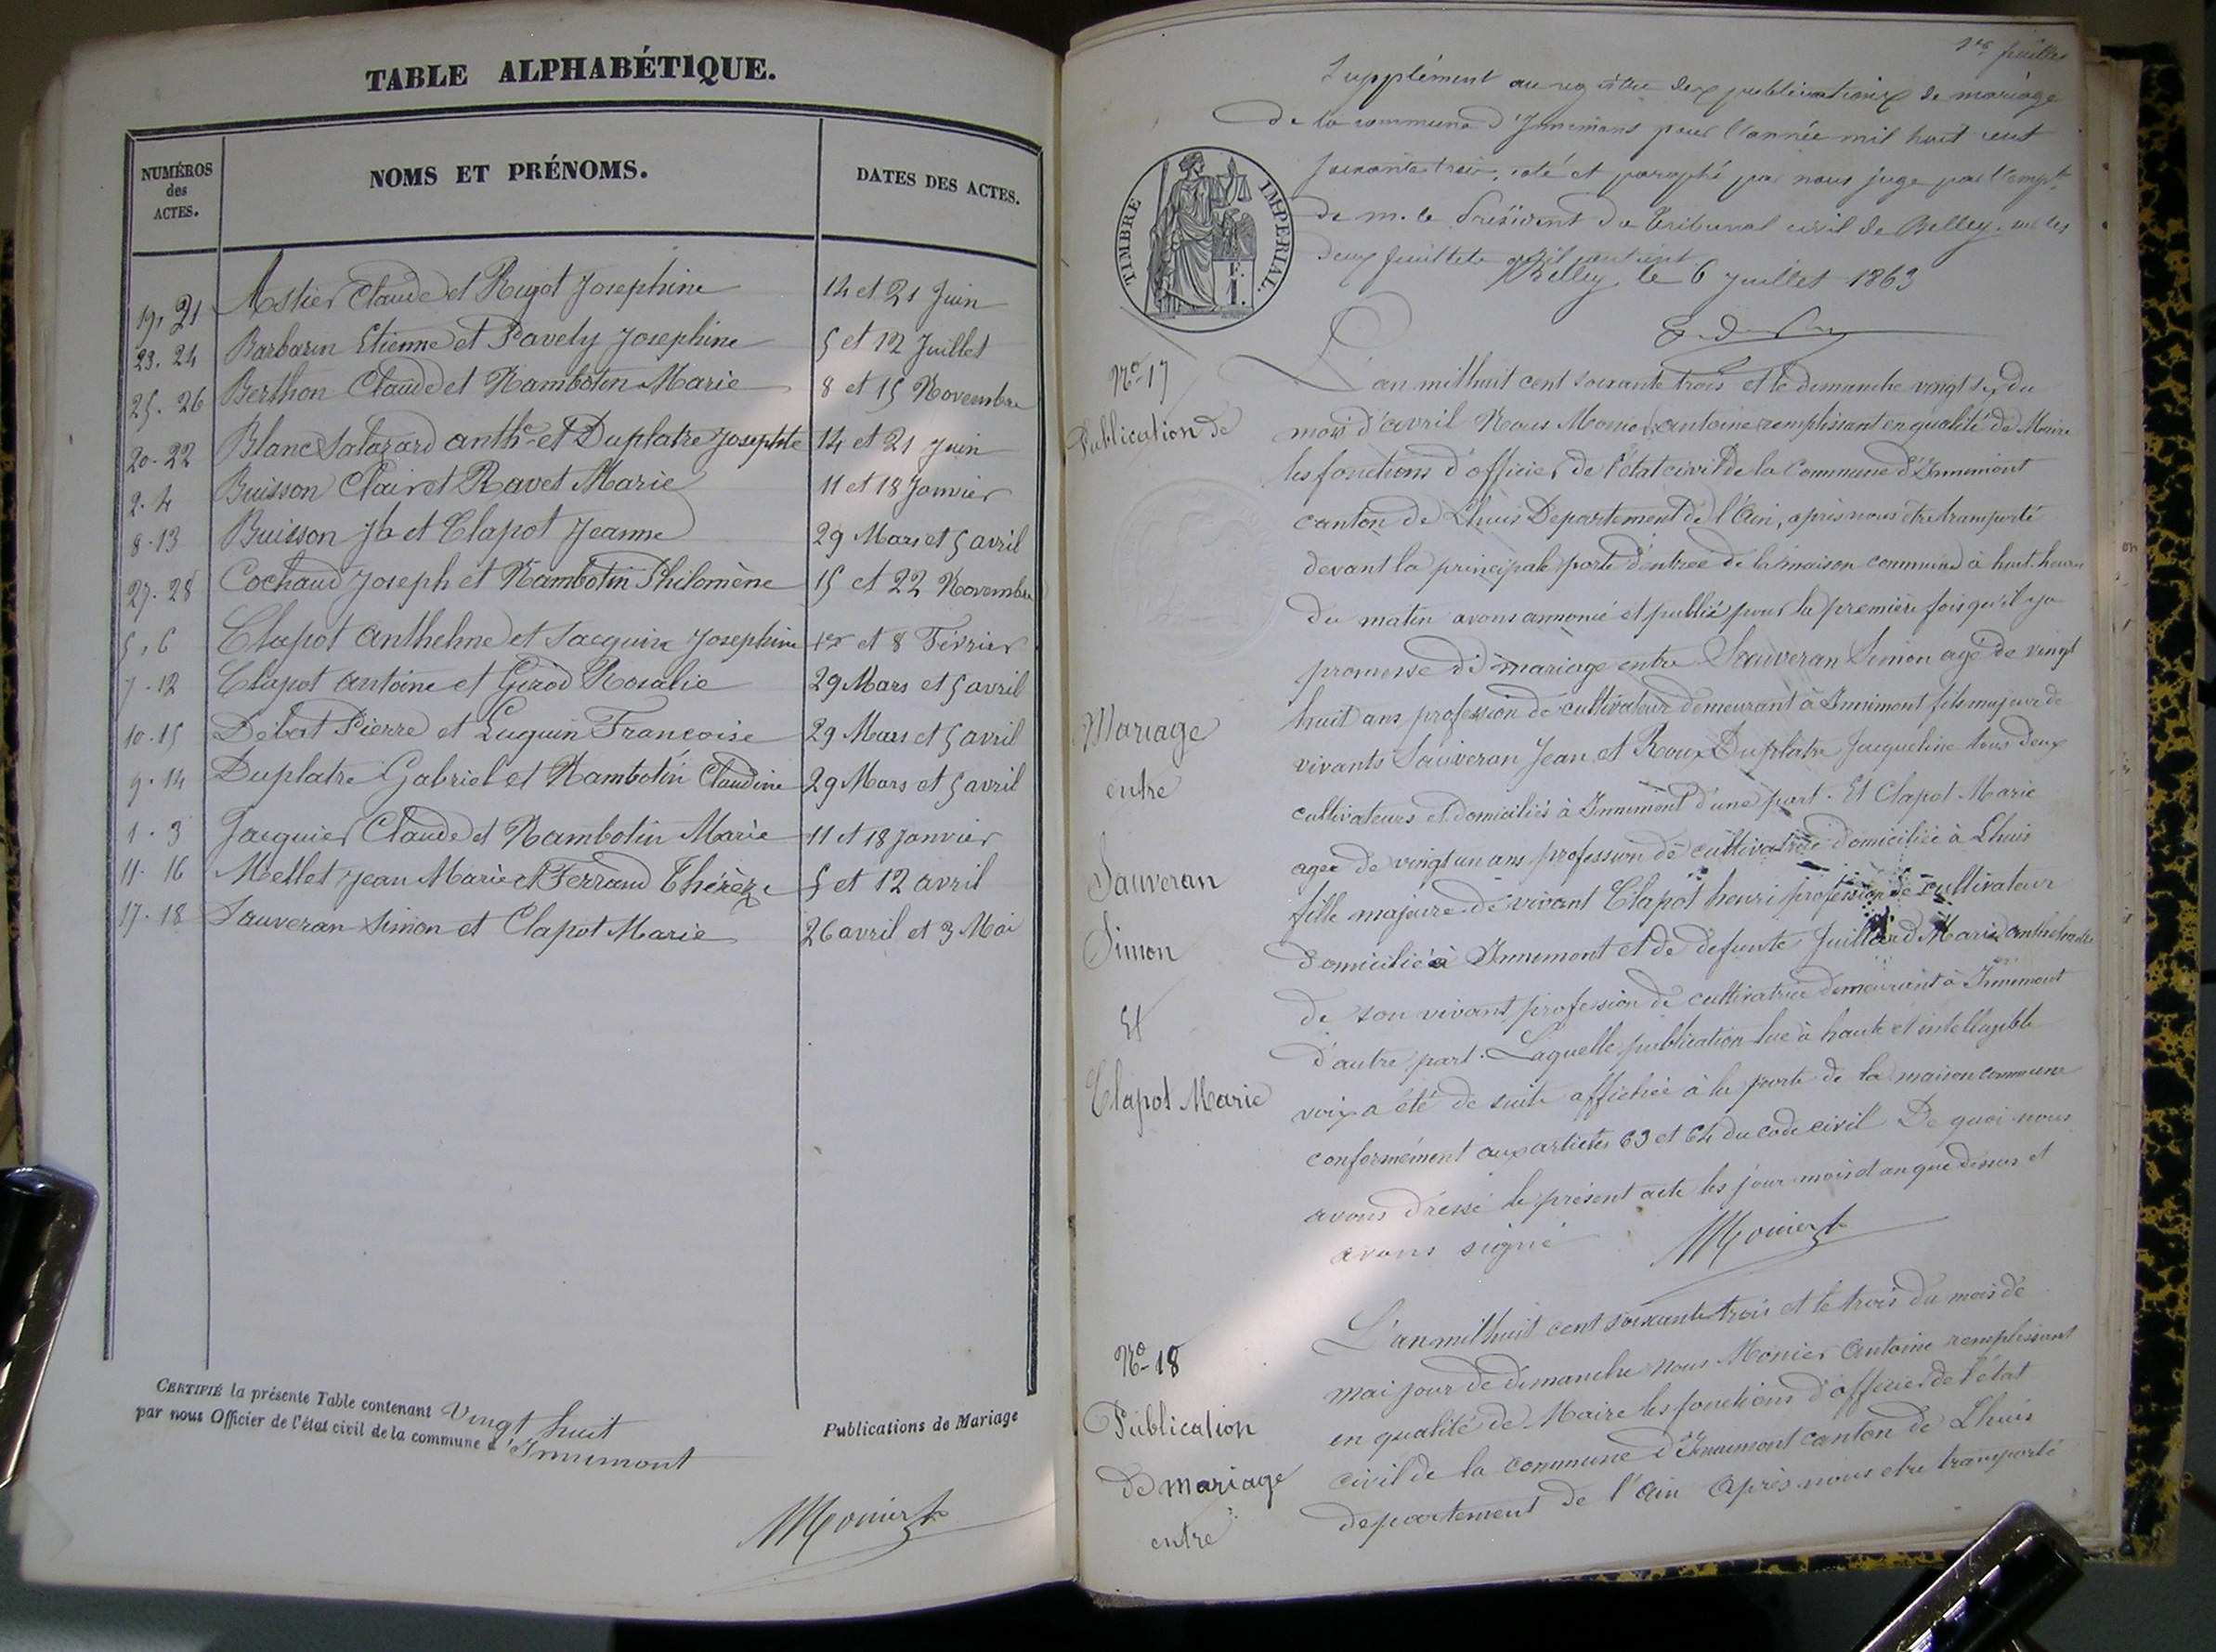 TABLE ALPHABÉTIQUE.
NUMÉROS des ACTES. NOMS ET PRÉNOMS. DATES DES ACTES.
19, 21 Astier Claude et Rigot Josephine 14 et 21 Juin
23. 24 Barbarin Etienne et Pavely Josephine 5 et 12 Juillet
25. 26 Berthon Claude et Rambotin Marie 8 et 15 Novembre
20. 22 Blanc Salazard anthe et Duplatre Josephte 14 et 21 Juin
2. 4 Buisson Clair et Ravet Marie 11 et 18 Janvier
8. 13 Buisson Jh et Clapot Jeanne 29 Mars et 5 avril
27. 28 Cochaud Joseph et Rambotin Philomène 15 et 22 Novembre
5, 6 Clapot anthelme et Jacquin Josephine 1er et 8 Février
7. 12 Clapot antoine et Girod Rosalie 29 Mars et 5 avril
10. 15 Debat Pierre et Luquin Francoise 29 Mars et 5 avril
9. 14 Duplatre Gabriel et Rambotin Claudine 29 Mars et 5 avril
1. 3 Jacquier Claude et Rambotin Marie 11 et 18 Janvier
11. 16 Mellet Jean Marie et Ferrand Thérèze 5 et 12 avril
17. 18 Sauveran Simon et Clapot Marie 26 avril et 3 Mai
CERTIFIÉ la présente Table contenant Vingt huit
par nous Officier de l'état civil de la commune d'Innimont
Publications de Mariage
Monier
feuillet
Supplément au registre des publications de mariage
de la commune d'Innimont pour l'année mil huit cent
soixante trois, coté et paraphé par nous juge par l'empt
de m. le Président du Tribunal civil de Belley, sur les
deux feuillets qu'il contient
Belley, le 6 juillet 1863
TIMBRE IMPERIAL.
F. 1.
No 17
Publication de
Mariage
entre
Sauveran
Simon
Et
Clapot Marie
L'an mil huit cent soixante trois et le dimanche vingt six du
mois d'avril Nous Monier antoine remplissant en qualité de Maire
les fonctions d'officier de l'état civil de la Commune d'Innimont
canton de Lhuis Departement de l'Ain, après nous être transporté
devant la principale porte d'entree de la maison commune à huit heures
du matin avons annoncé et publié pour la première fois qu'il y a
promesse de mariage entre Sauveran Simon agé de vingt
huit ans profession de cultivateur demeurant à Innimont fils majeur de
vivants Sauveran Jean et Roux Duplatre Jacqueline tous deux
cultivateurs et domiciliés à Innimont d'une part. Et Clapot Marie
agée de vingt un ans profession de cultivatrice domiciliée à Lhuis
fille majeure de vivant Clapot henri profession de cultivateur
domicilié à Innimont et de defunte Juilland Marie
de son vivant profession de cultivatrice demeurant à Innimont
d'autre part. Laquelle publication lue à haute et intellegible
voix a été de suite affichée à la porte de la maison commune
conformément aux articles 63 et 64 du code civil De quoi nous
avons dressé le présent acte les jour mois et an que dessus et
avons signé
Monier
No 18
Publication
de mariage
entre
L'an mil huit cent soixante trois et le trois du mois de
mai jour de dimanche nous Monier Antoine remplissant
en qualité de Maire les fonctions d'officier de l'état
civil de la commune d'Innimont canton de Lhuis
departement de l'Ain Après nous etre transporté